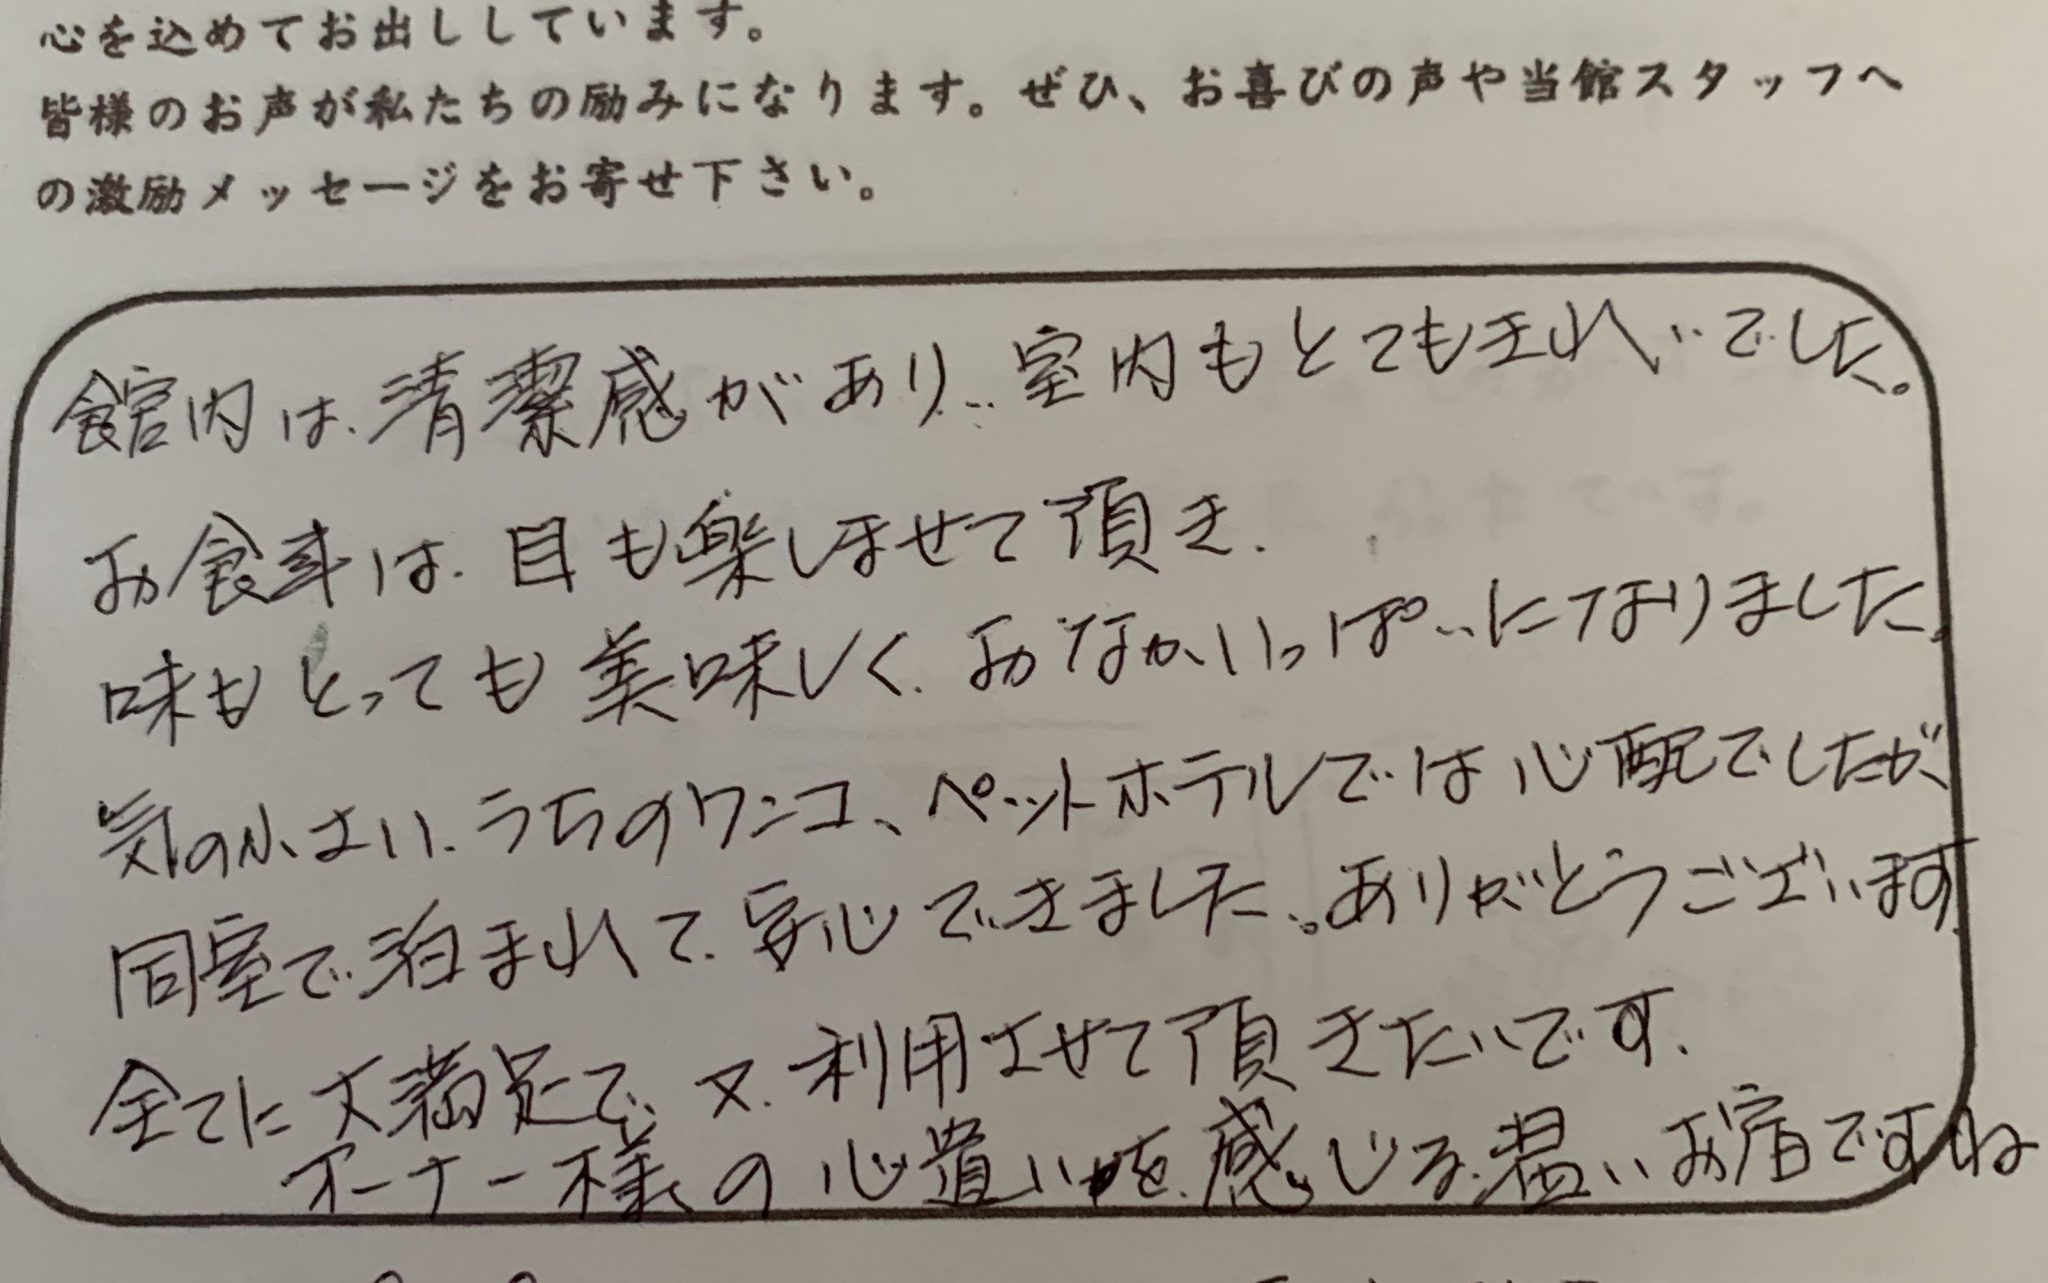 心を込めてお出ししています。
皆様のお声が私たちの励みになります。ぜひ、お喜びの声や当館スタッフへ
の激励メッセージをお寄せ下さい。
館内は、清潔感があり、室内もとてもきれいでした。
お食事は、目も楽しませて頂き、
味もとっても美味しく、おなかいっぱいになりました。
気の小さい、うちのワンコ、ペットホテルでは心配でしたが
同室で泊まれて、安心できました。ありがとうございます。
全てに大満足で、又、利用させて頂きたいです。
オーナー様の心遣いを感じる温いお宿ですね